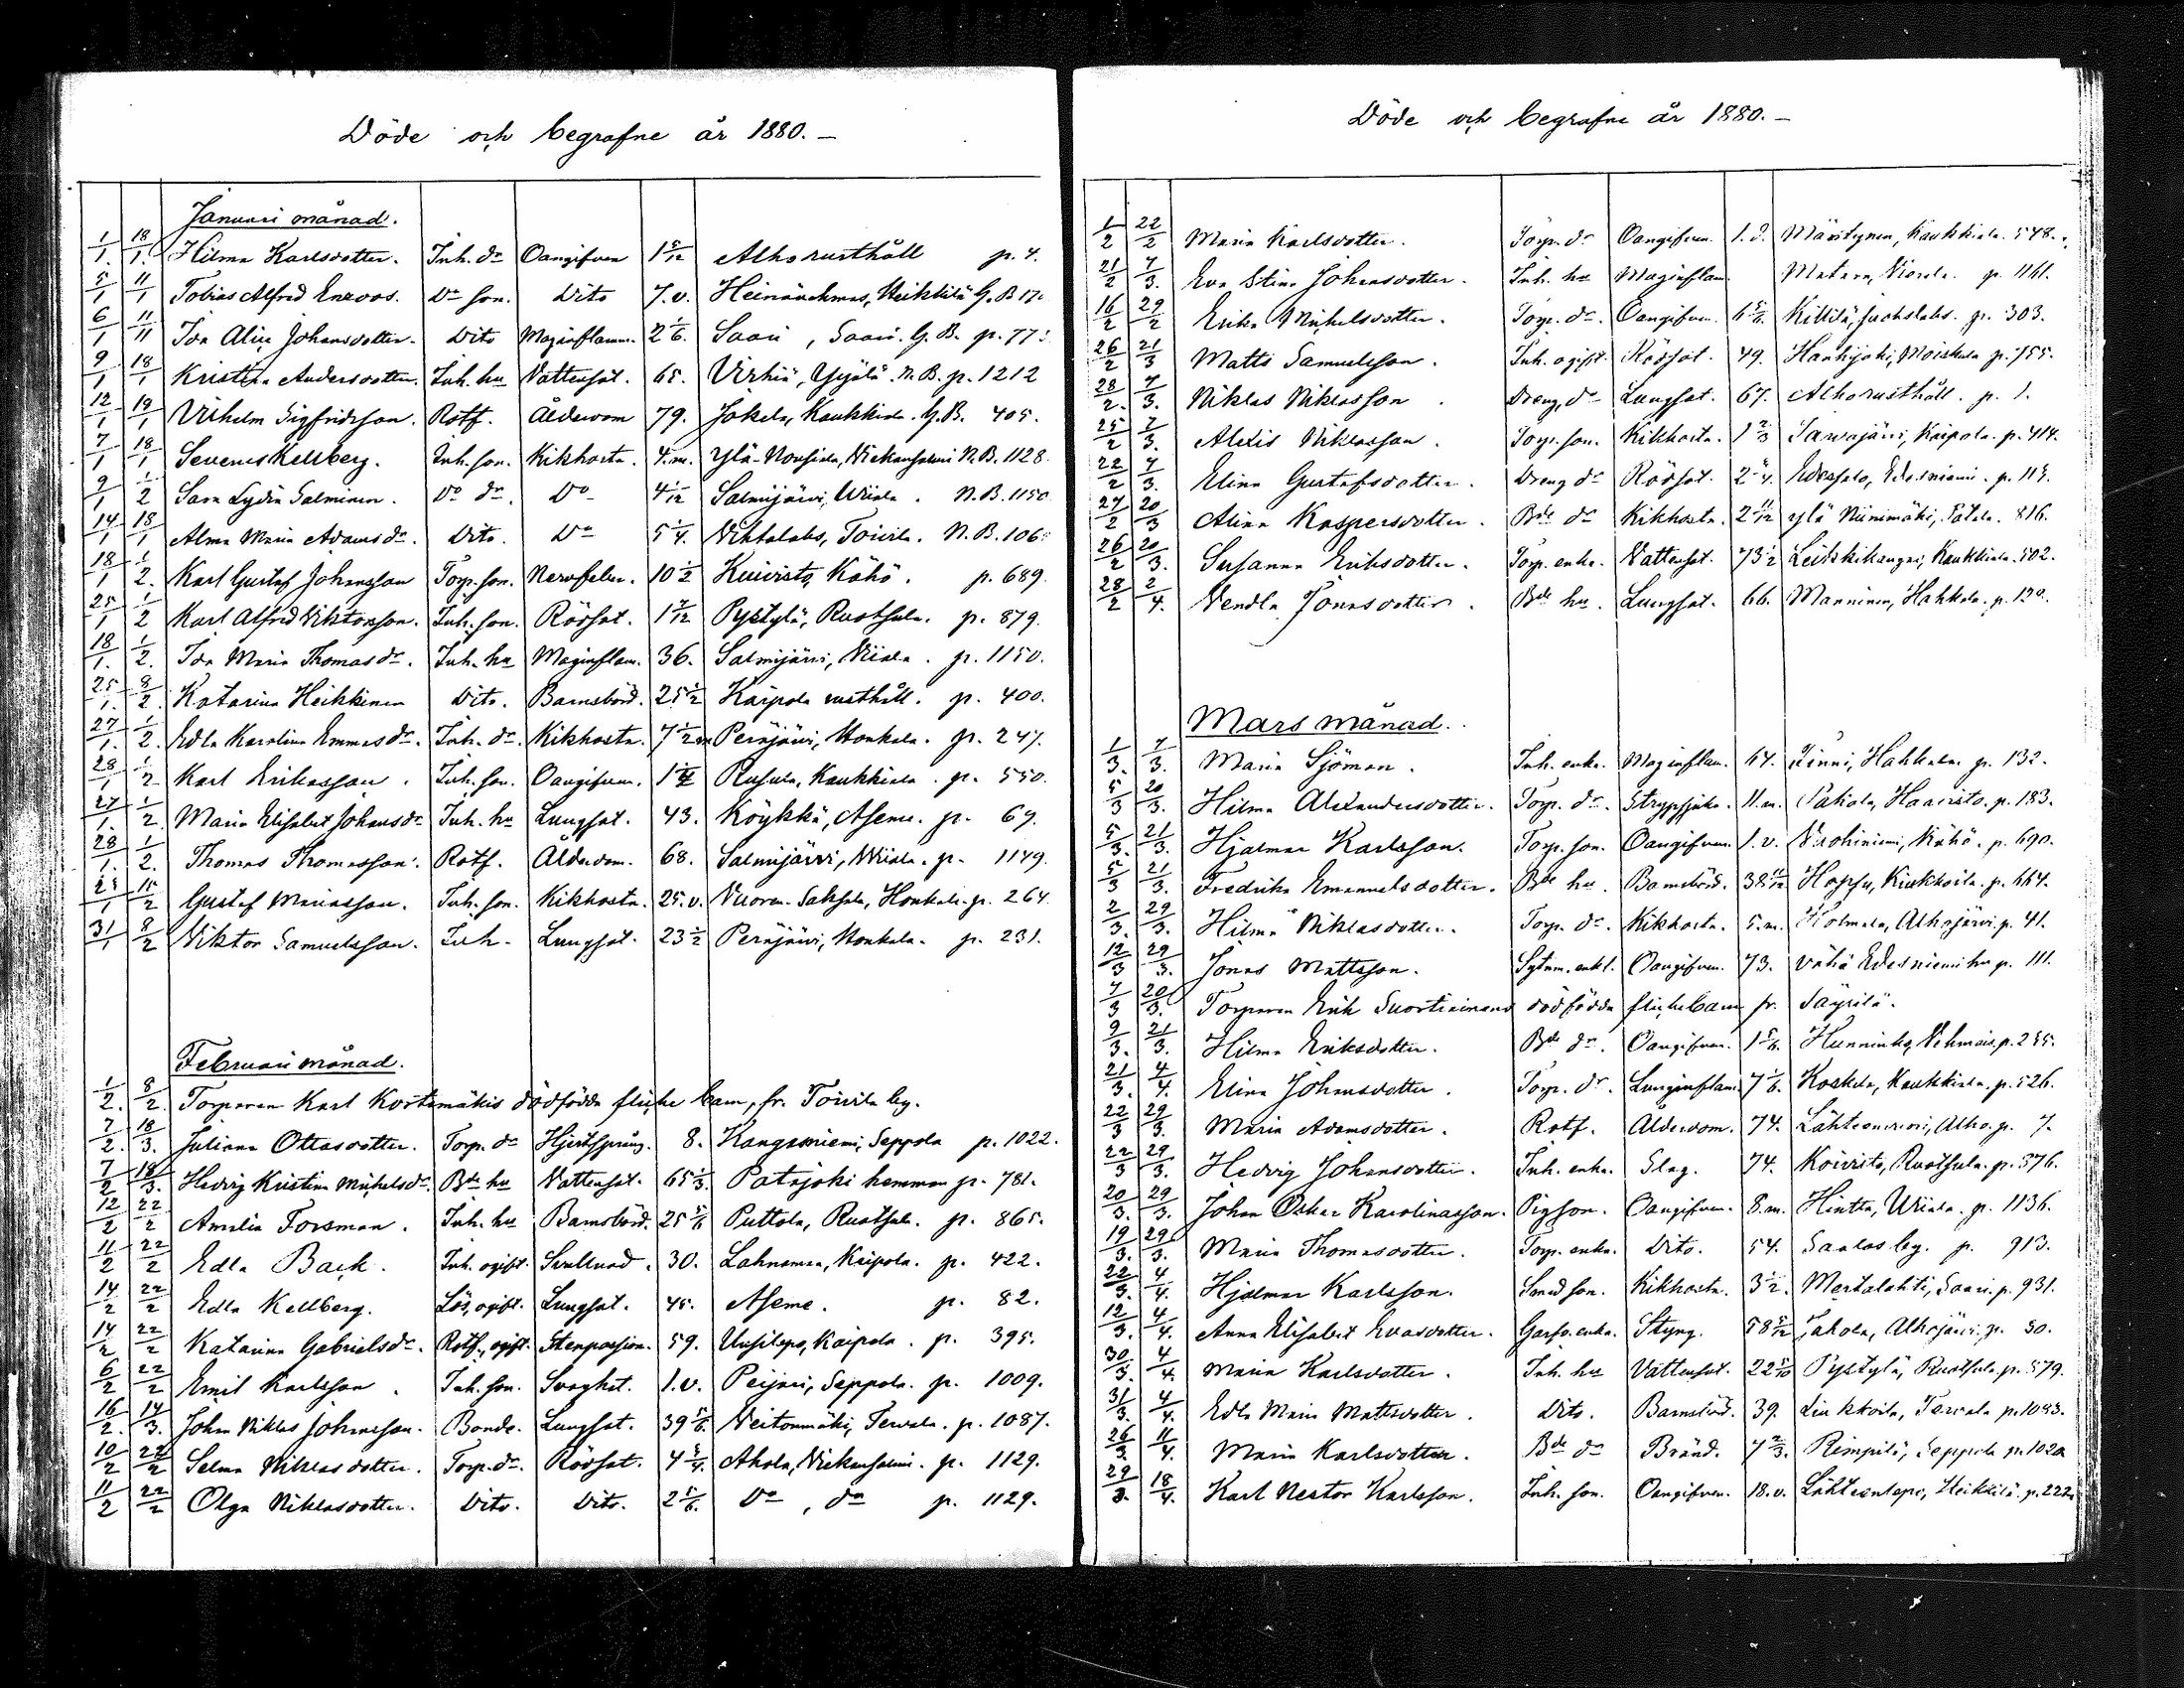 Döde och begrafne år 1880.
Januari månad.
1/1. 18/1. Hilma Karlsdotter. Inh. dr Oangifven 1 5/12 Alho rusthåll p. 4.
5/1 11/1 Tobias Alfred Enroos. Do son. Dito 7.v. Heikkilä G. B.
6/1 11/11 Ida Alina Johansdotter. Dito Maginflamm. 2 1/6. Saari, Saari. G. B. p. 77
9/1 18/1 Kristina Andersdotter. Inh. hu Vattensot. 65. Yijälä. N. B. p. 1212
12/1 19/1 Vilhelm Sigfridsson. Rotf. Ålderdom 79. Jokela, Kaukkiala. G. B. 405.
7/1 18/1 Severus Kellberg. Inh. son. Kikhosta. 4.m. Ylä-Nousiala, Niekansalmi N. B. 1128.
9/1 1/2 Sara Lydia Salminen. Do dr. Do 4 1/12 Salmijärvi, Wiiala. N. B. 1150
14/1 18/1 Alma Maria Adamsdr. Dito. Do 5 1/4. Toivila. N. B. 106
18/1 1/2. Karl Gustaf Johansson Torp. son. Nervfeber. 10 1/2 Kuivisto, Kähö. p. 689.
25/1 1/2 Karl Alfred Viktorsson. Inh. son. Rödsot. 1 7/12 Pystylä, Ruotsula. p. 879.
18/1. 1/2. Ida Maria Thomasdr. Inh. hu Maginflam. 36. Salmijärvi, Wiiala. p. 1150.
25/1. 8/2. Katarina Heikkinen Dito. Barnsbörd. 25 1/2 Kaipola rusthåll. p. 400.
27/1. 1/2. Edla Karolina Emmasdr. Inh. dr. Kikhosta. 7 1/2 m Peräjärvi, Honkala. p. 247.
28/1 1/2 Karl Eriksson. Inh. son. Oangifven. 1 1/4 Rusula, Kaukkiala. p. 550.
27/1. 1/2 Maria Elisabet Johansdr Inh. hu Lungsot. 43. Köykkä, Aseme. p. 69.
28/1. 1/2. Thomas Thomasson. Rotf. Ålderdom. 68. Salmijärvi, Wiiala. p. 1149.
25/1 15/2 Gustaf Mariasson. Inh. son. Kikhosta. 25.v. Vuoren-Saksala, Honkala. p. 264.
31/1 8/2 Viktor Samuelsson. Inh. Lungsot. 23 1/2 Peräjärvi, Honkala. p. 231.
Februari månad.
1/2. 8/2. Torparen Karl Kortemäkis dödfödda flicke barn, fr. Toivila by.
7/2. 18/3. Juliana Ottasdotter. Torp. dr Hjertsprång. 8. Kangasniemi, Seppola p. 1022.
7/2 18/3. Hedvig Kristina Mickelsdr. Bde hu Vattensot. 65 1/3. Patajoki hemman p. 781.
12/2 22/2 Amalia Forsman. Inh. hu Barnsbörd. 25 5/6 Puttola, Ruotsula. p. 865.
11/2 22/2 Edla Back. Inh. ogift. Svullnad. 30. Lahnamaa, Kaipola. p. 422.
14/2 22/2 Edla Kellberg. Lös, ogift. Lungsot. 45. Aseme. p. 82.
14/2 22/2 Katarina Gabrielsdr. Rotf., ogift. Stenpassion. 59. Uusitupa, Kaipola. p. 395.
6/2 22/2 Emil Karlsson. Inh. son. Svaghet. 1.v. Peijari, Seppola. p. 1009.
16/2. 14/3. Johan Niklas Johansson. Bonde. Lungsot. 39 5/6. Neitonmäki, Tervala. p. 1087.
10/2 22/2 Selma Niklasdotter. Torp. dr. Rödsot. 4 3/4. Ahola, Niekansalmi. p. 1129.
11/2 22/2 Olga Niklasdotter. Dito. Dito. 2 1/6. Do, do p. 1129.
Döde och begrafne år 1880.
1/2 22/2 Maria Karlsdotter. Torp. dr Oangifven. 1.d. Mäntynen, Kaukkiala. 548.
21/2 7/3. Eva Stina Johansdotter. Inh. hu Maginflam. Matara, p. 1161.
16/2 29/2 Erika Mickelsdotter. Torp. dr. Oangifven. Killilä, Juokslahs. p. 303.
26/2 21/3 Matts Samuelsson. Inh. ogift. Rödsot. 49. Haukijoki, Moiskala p. 755.
28/2. 7/3. Niklas Niklasson. Dreng, do Lungsot. 67. Alho rusthåll. p. 1.
25/2 7/3. Alexis Niklasson. Torp. son. Kikhosta. 1 2/3 Sarvajärvi, Kaipola. p. 414.
22/2 7/3. Elina Gustafsdotter. Dreng dr Rödsot. 2 3/4. Edessalo, Edesniemi. p. 115.
27/2 20/3 Alina Kaspersdotter. Bde dr Kikhosta. 2 11/12 Ylä Niinimäki, Pätälä. 816.
26/2 20/3. Susanna Eriksdotter. Torp. enka. Vattensot. 73 1/2 Kaukkiala. 502.
28/2 2/4. Vendla Jonasdotter. Bde hu. Lungsot. 66. Manninen, Hahkala. p. 120.
Mars månad.
1/3. 7/3. Maria Sjöman. Inh. enka. Maginflam. 64. Rinni, Hahkala p. 132.
5/3 20/3. Hilma Alexandersdotter. Torp. dr. Strypsjuka. 11.m. Pahola, Haavisto. p. 183.
5/3. 21/3. Hjalmar Karlsson. Torp. son. Oangifven. 1.v. Vuohiniemi, Kähö. p. 690.
5/3 21/3. Fredrika Emanuelsdotter. Bde hu. Barnsbörd. 38 11/12 Hopsu, Kuukkoila. p. 664.
2/3. 29/3. Hilma Niklasdotter. Torp. dr. Kikhosta. 5.m. Kolmala, Alhojärvi. p. 41.
12/3 29/3. Jonas Mattsson. Sytnm. enkl. Oangifven. 73. Vähä Edesniemi hu p. 111.
7/3 20/3. Torparen Erik Suortiaimens dödfödda flicke barn fr. Säyrilä.
9/3. 21/3. Hilma Eriksdotter. Bde dr. Oangifven. 1 5/6. Hunninko, Vihmais. p. 255.
21/3. 4/4. Elina Johansdotter. Torp. dr. Lunginflam. 7 1/6. Koskela, Kaukkiala. p. 526.
22/3 29/3. Maria Adamsdotter. Rotf. Ålderdom. 74. Alho. p. 7.
22/3 29/3. Hedvig Johansdotter. Inh. enka. Slag. 74. Koivisto, Ruotsula. p. 876.
20/3. 29/3. Johan Oskar Karolinasson. Pigson. Oangifven. 8.m. Hintta, Wiiala. p. 1136.
19/3. 29/3. Maria Thomasdotter. Torp. enka. Dito. 54. Saalas by. p. 913.
22/3. 4/4. Hjalmar Karlsson. Smed son. Kikhosta. 3 1/2. Mertalahti, Saari. p. 931.
12/3. 4/4. Anna Elisabet Evasdotter. Garfv. enka. Styng. 58 5/12 Jakola, Alhojärvi. p. 30.
30/3. 4/4. Maria Karlsdotter. Inh. hu Vattensot. 22 Pystylä, Ruotsula. p. 879.
31/3. 4/4. Edla Maria Mattsdotter. Dito. Barnsbörd. 39. Liukkoila, Tervala p. 1093.
26/3. 11/4. Maria Karlsdotter. Bde dr Bränd. 4 2/3. Rimpilä, Seppola p. 1020
29/3. 18/4. Karl Nestor Karlsson. Inh. son. Oangifven. 18.v. Lähteentapi, Heikkilä. p. 222.